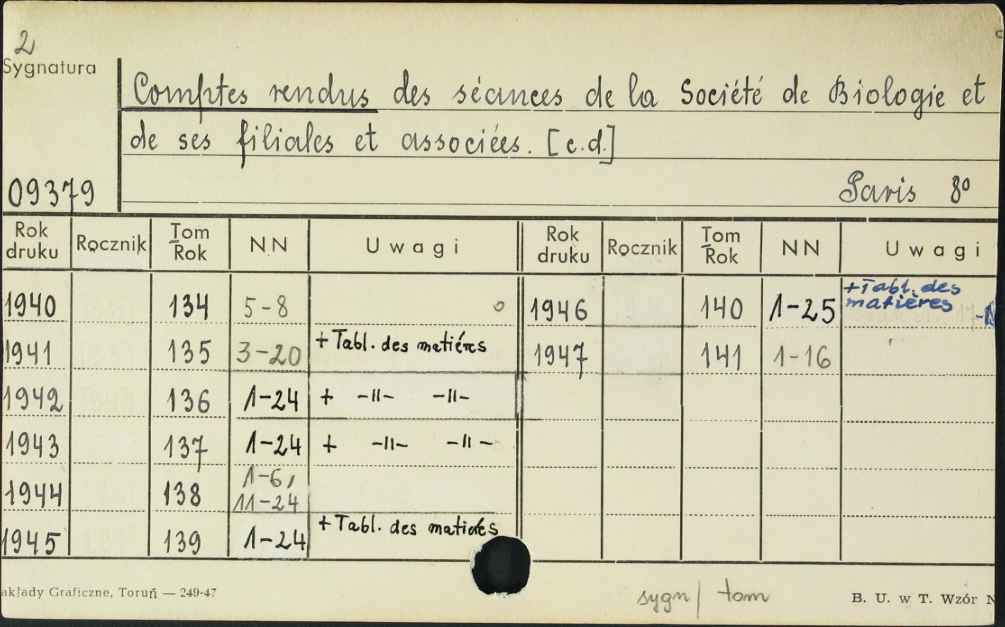 2
Sygnatura
Comptes rendus des séances de la Société de Biologie et
de ses filiales et associées. [c.d.]
09379
Paris 8º
Rok druku Rocznik Tom Rok NN Uwagi Rok druku Rocznik Tom Rok NN Uwagi
1940 134 5-8 1946 140 1-25 +Tabl. des matières
1941 135 3-20 +Tabl. des matiéres 1947 141 1-16
1942 136 1-24 + -"- -"-
1943 137 1-24 + -"- -"-
1944 138 1-6, 11-24
1945 139 1-24 +Tabl. des matières
akłady Graficzne, Toruń — 249-47
sygn/ tom
B. U. w T. Wzór N